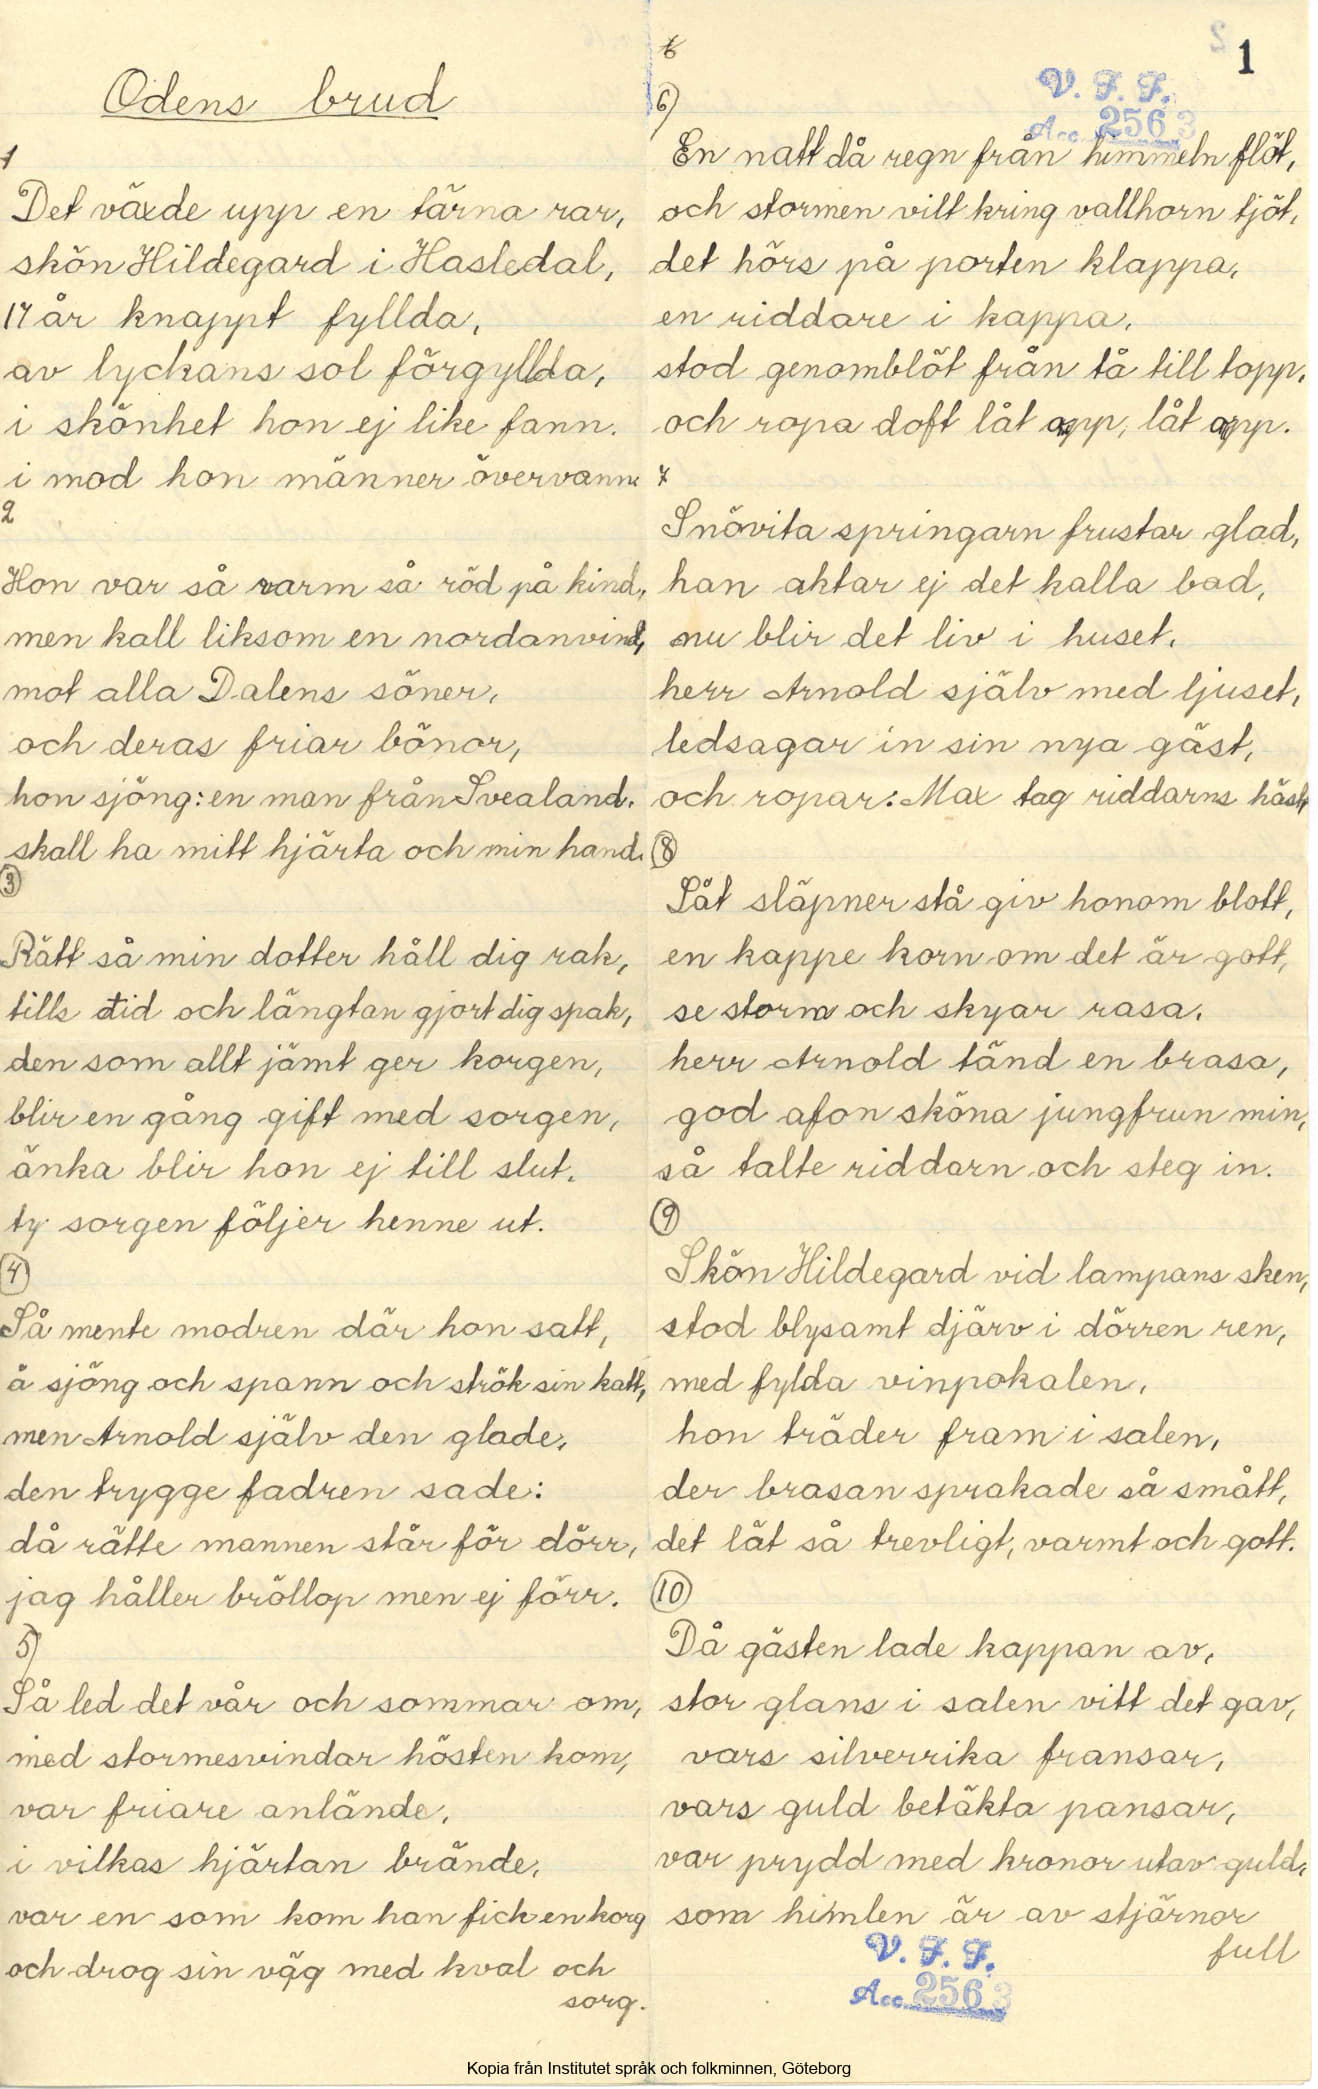 Odens brud
1
Det växde upp en tärna rar,
skön Hildegard i Hasledal,
17 år knappt fyllda,
av lyckans sol förgyllda,
i skönhet hon ej like fann.
i mod hon männer övervann.
2
Hon var så varm så röd på kind,
men kall liksom en nordanvind,
mot alla Dalens söner,
och deras friar bönor,
hon sjöng: en man från Svealand.
skall ha mitt hjärta och min hand.
3
Rätt så min dotter håll dig rak,
tills tid och längtan gjort dig spak,
den som allt jämt ger korgen,
blir en gång gift med sorgen,
änka blir hon ej till slut.
ty sorgen följer henne ut.
4
Så mente modren där hon satt,
å sjöng och spann och strök sin katt,
men Arnold själv den glade,
den trygge fadren sade:
då rätte mannen står för dörr,
jag håller bröllop men ej förr.
5)
Så led det vår och sommar om,
med stormesvindar hösten kom,
var friare anlände,
i vilkas hjärtan brände,
var en som kom han fick en korg
och drog sin väg med kval och
sorg.
6
1
6)
V. F. F.
Acc. 2563
En natt då regn från himmeln flöt,
och stormen vilt kring vallhorn tjöt,
det hörs på porten klappa,
en riddare i kappa,
stod genomblöt från tå till topp,
och ropa doft låt opp, låt opp.
7
Snövita springarn frustar glad,
han aktar ej det kalla bad,
nu blir det liv i huset,
herr Arnold själv med ljuset,
ledsagar in sin nya gäst,
och ropar: Max tag riddarns häst
8
Låt släpner stå giv honom blott,
en kappe korn om det är gott,
se storm och skyar rasa,
herr Arnold tänd en brasa,
god afon sköna jungfrun min,
så talte riddarn och steg in.
9
Skön Hildegard vid lampans sken,
stod blysamt djärv i dörren ren,
med fylda vinpokalen,
hon träder fram i salen,
der brasan sprakade så smått,
det lät så trevligt, varmt och gott.
10
Då gästen lade kappan av,
stor glans i salen vitt det gav,
vars silverrika fransar,
vars guld betäkta pansar,
var prydd med kronor utav guld,
som himlen är av stjärnor
full
V. F. F.
Acc. 2563
Kopia från Institutet språk och folkminnen, Göteborg